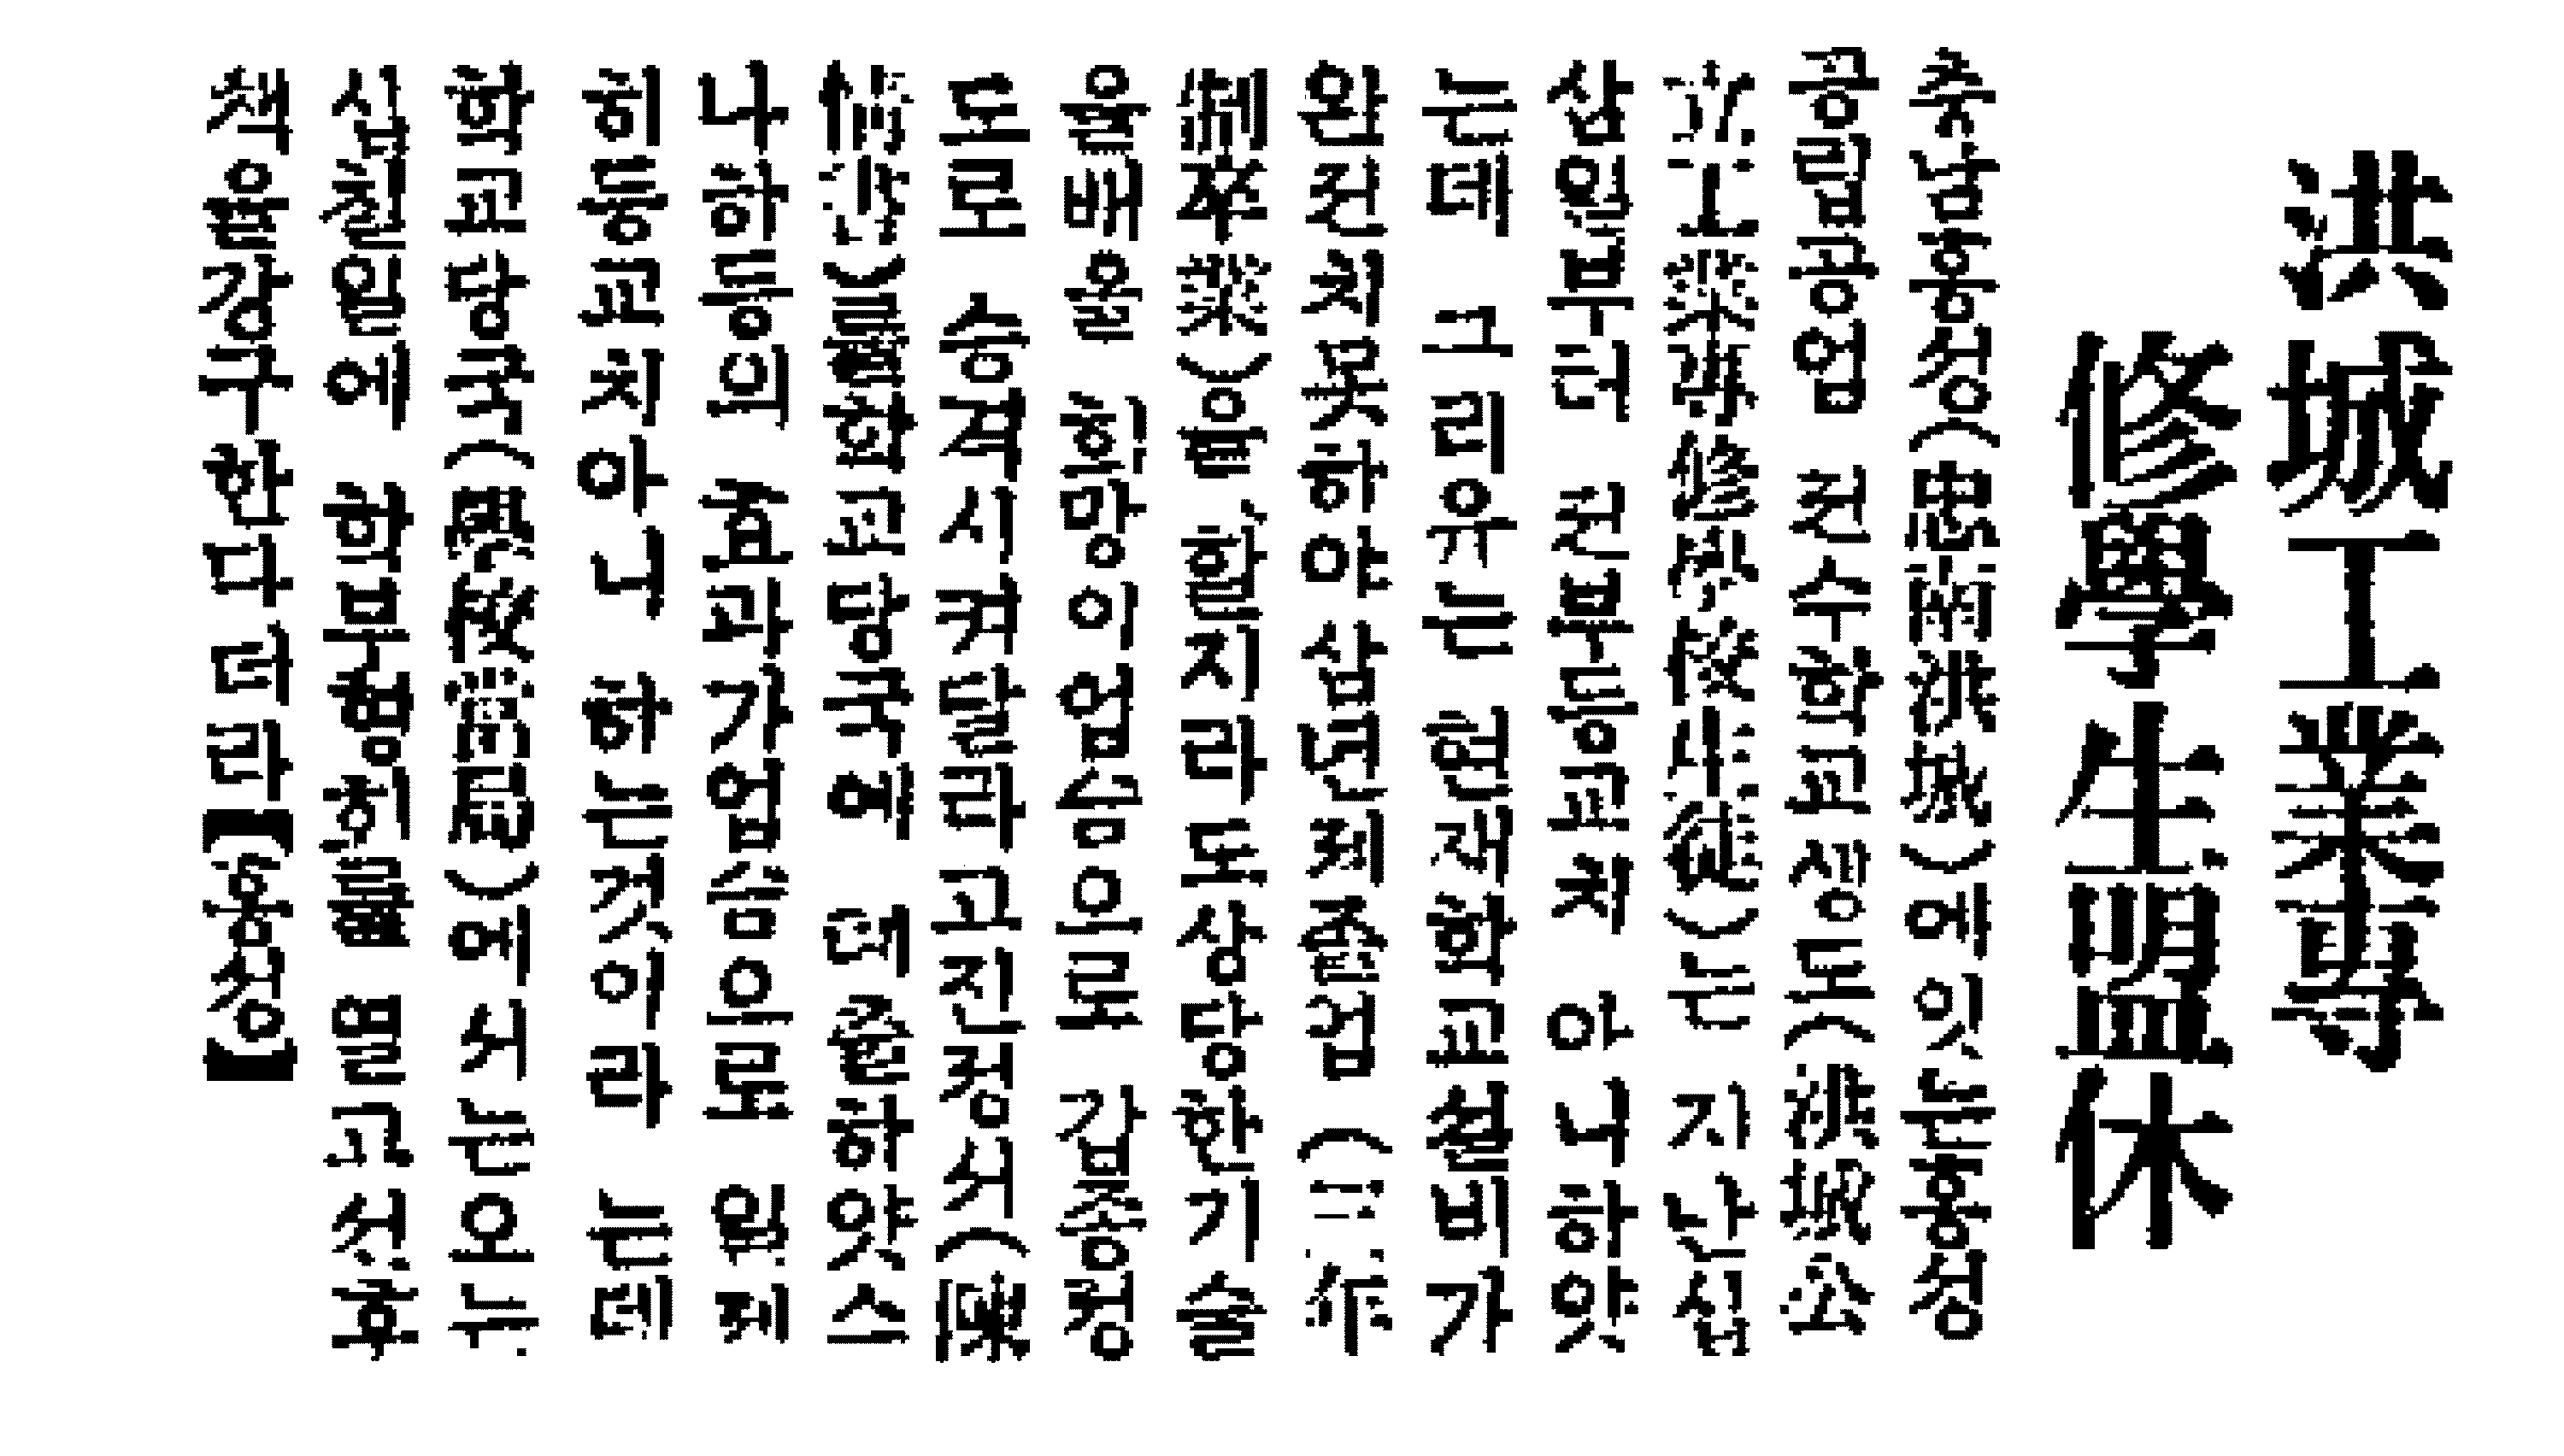 洪城工業專
修學生盟休
충남홍성(忠南洪城)에잇는홍성
공립공업 전수학교생도(洪城公
立工業專修學校生徒)는 지난십
삼일부터 전부등교치 아니하얏
는데 그리유는 현재학교설비가
완전치못하야 삼년제졸업 (三年
制卒業)을 할지라도 상당한기술
을배울 희망이업슴으로 갑종정
도로 승격시켜달라고진정서(陳
情書)를학교당국에 뎨출하얏스
나하등의 효과가업슴으로 일제
히등교치아니 하는것이라 는데
학교당국(學校當局)에서는오는
십칠일에 학부형회를 열고선후
책을강구한다더라【홍성】